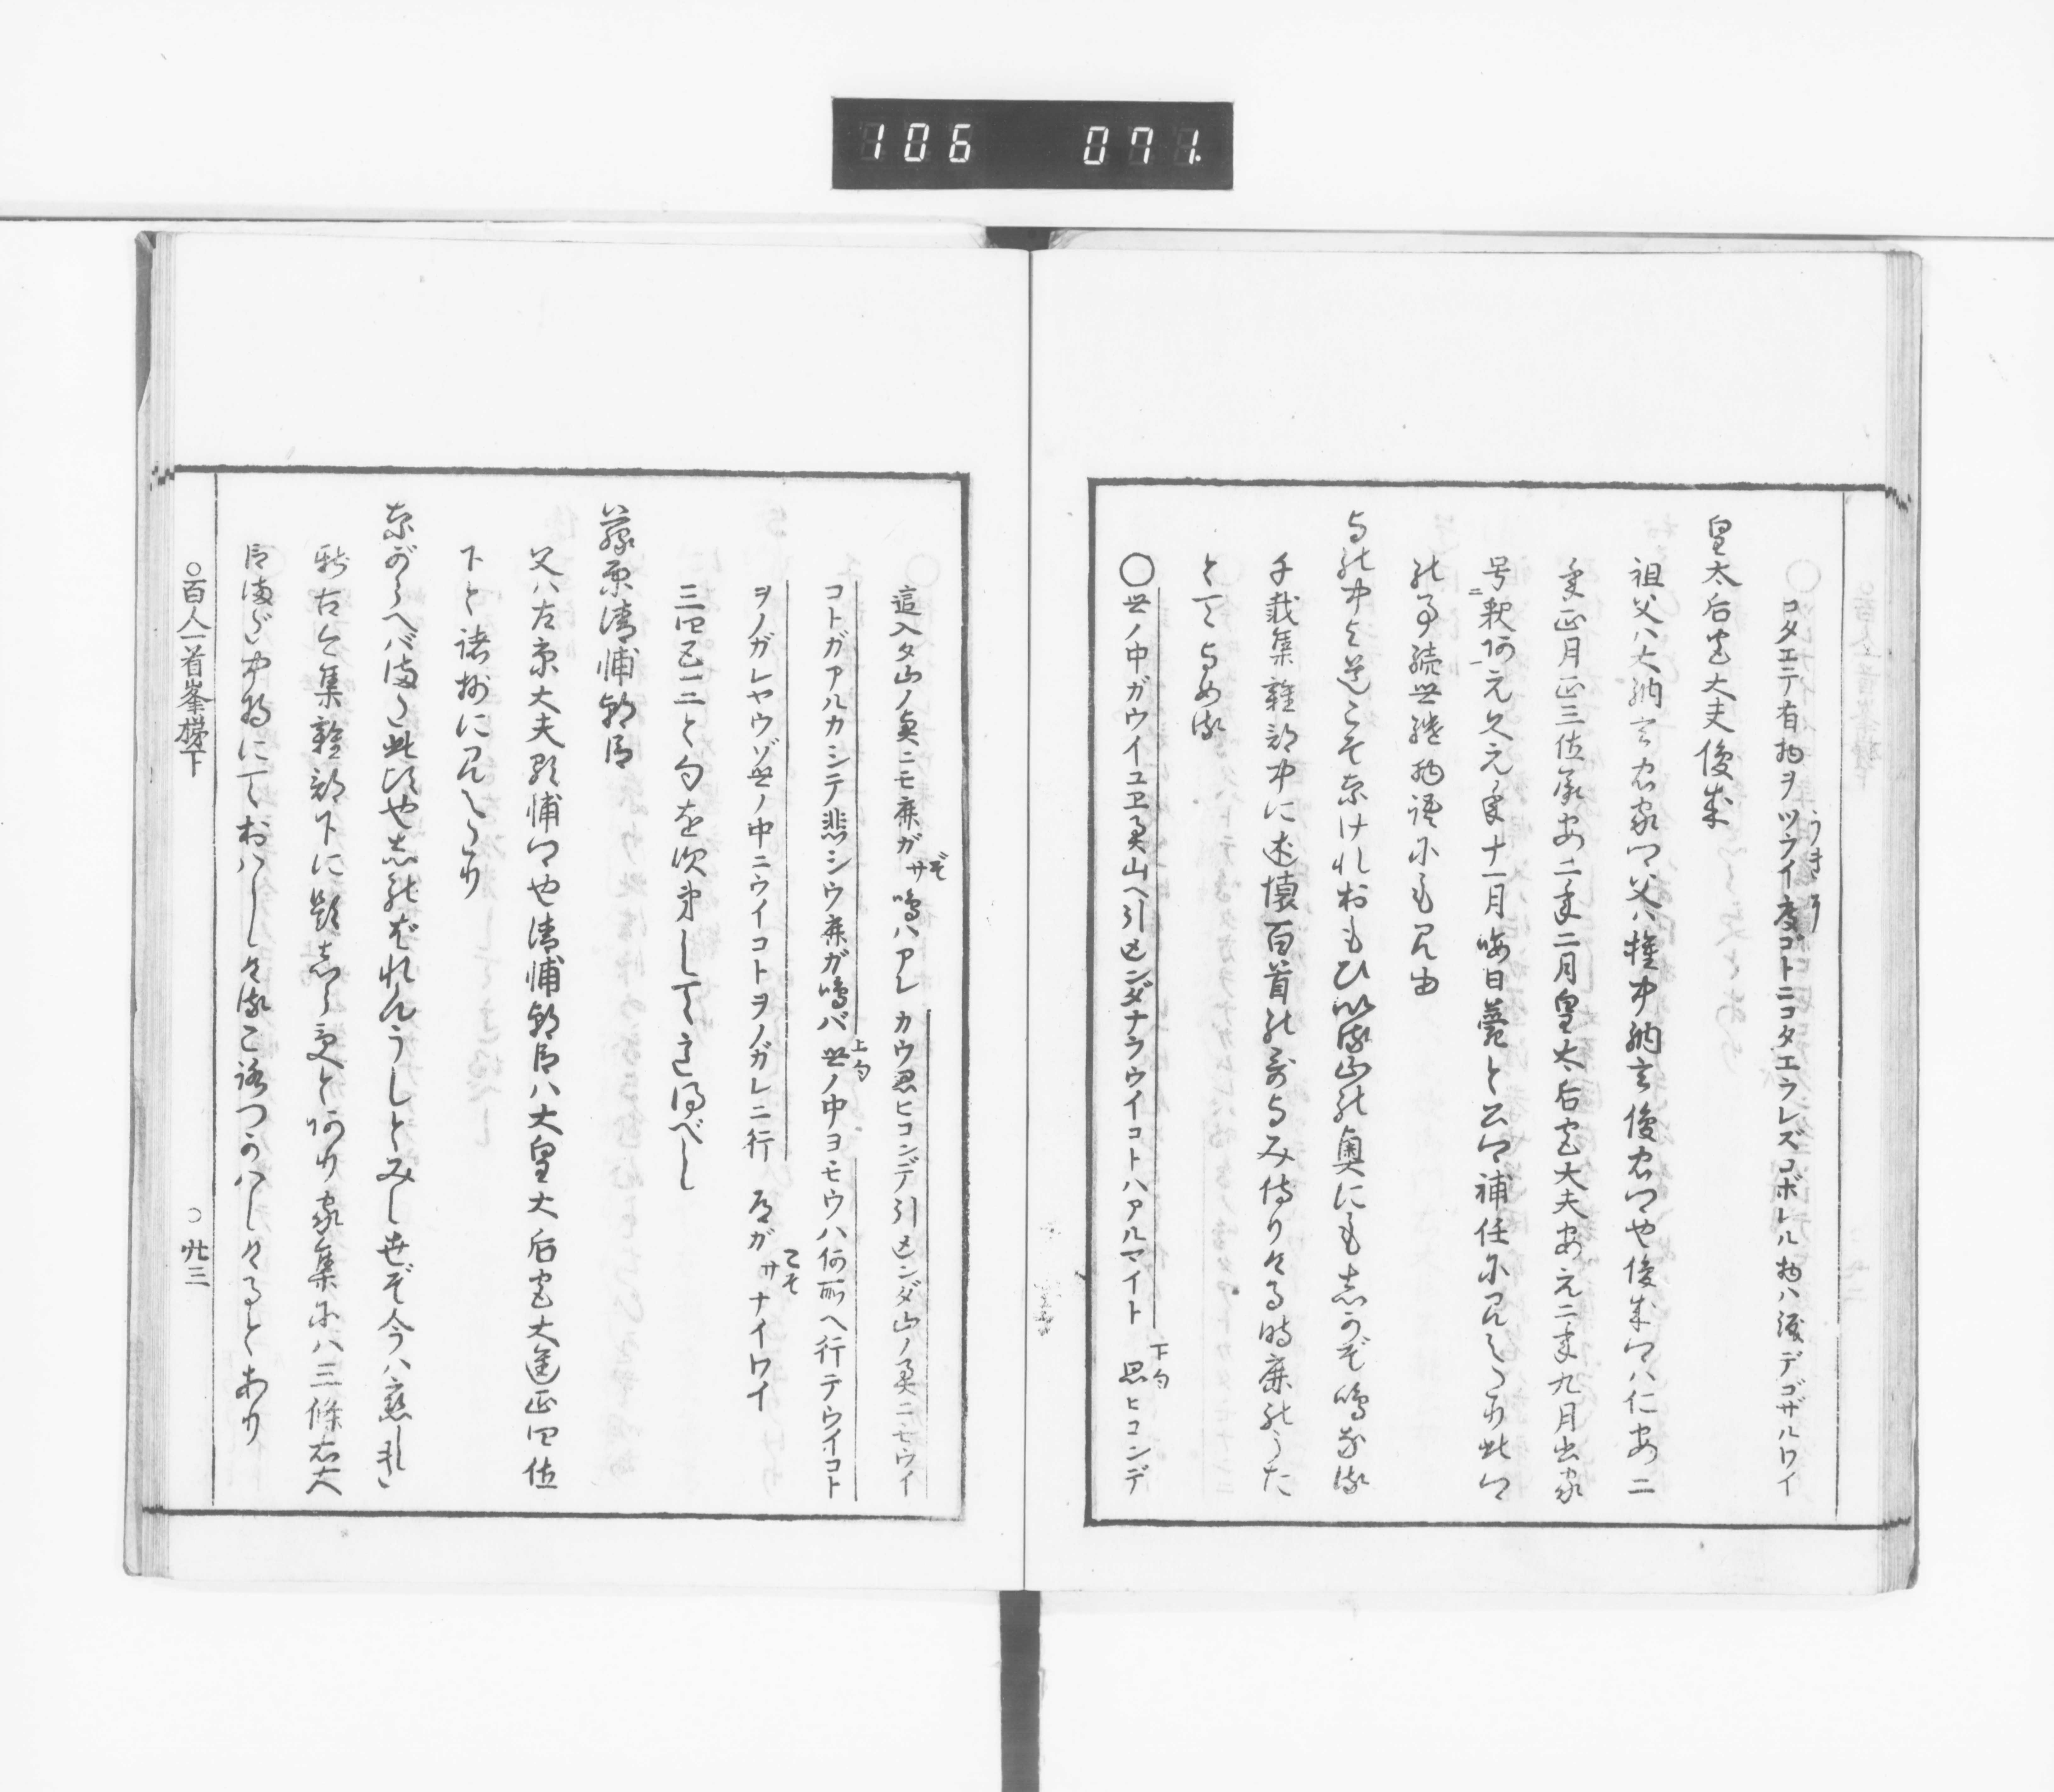 106 071
コタエテ有物ヲツウイ度ゴトニコタエラレズコボレル物ハ涙デゴザルワイ
うきに
皇太后宮大夫俊成
祖父ハ大納言忠家卿父ハ権中納言俊忠卿也俊成卿ハ仁安二
年正月正三位承安二年二月皇太后宮大夫安元二年九月出家
号釈阿元久元年十一月晦日薨と公卿補任に見えたり此卿
の事続世継物語にも見ゆ
与の中よ道こそなけれおもひ以る山の奥にも志かぞ鳴なる
千載集雑部中に述懐百首の哥よみ侍りける時鹿のうた
とてよめる
〇世ノ中ガウイユヱ奥山ヘ引込ンダナラウイコトハアルマイト 思ヒコンデ
下句
這入タ山ノ奥ニモ鹿ガサ 鳴ハアレ カウ思ヒコンデ引込ンダ山ノ奥ニモウイ
ぞ
コトガアルカシテ悲シウ鹿ガ鳴バ 世ノ中ヨモウハ何所ヘ行テウイコト
上句
ヲノガレヤウゾ世ノ中ニウイコトヲノガレニ行 道ガサナイワイ
こそ
三四五一二と句を次第して意得べし
藤原清輔朝臣
父ハ左京大夫顕輔卿也清輔朝臣ハ大皇大后宮大進正四位
下と諸抄に見えたり
ながらへバまた此頃や志のばれんうしとみし世ぞ今ハ恋しき
新古今集雑部下に題志らずと阿り家集にハ三條右大
臣まだ中将にておはしける時つかはしけるとあり
〇百人一首峯梯下
〇 廿三